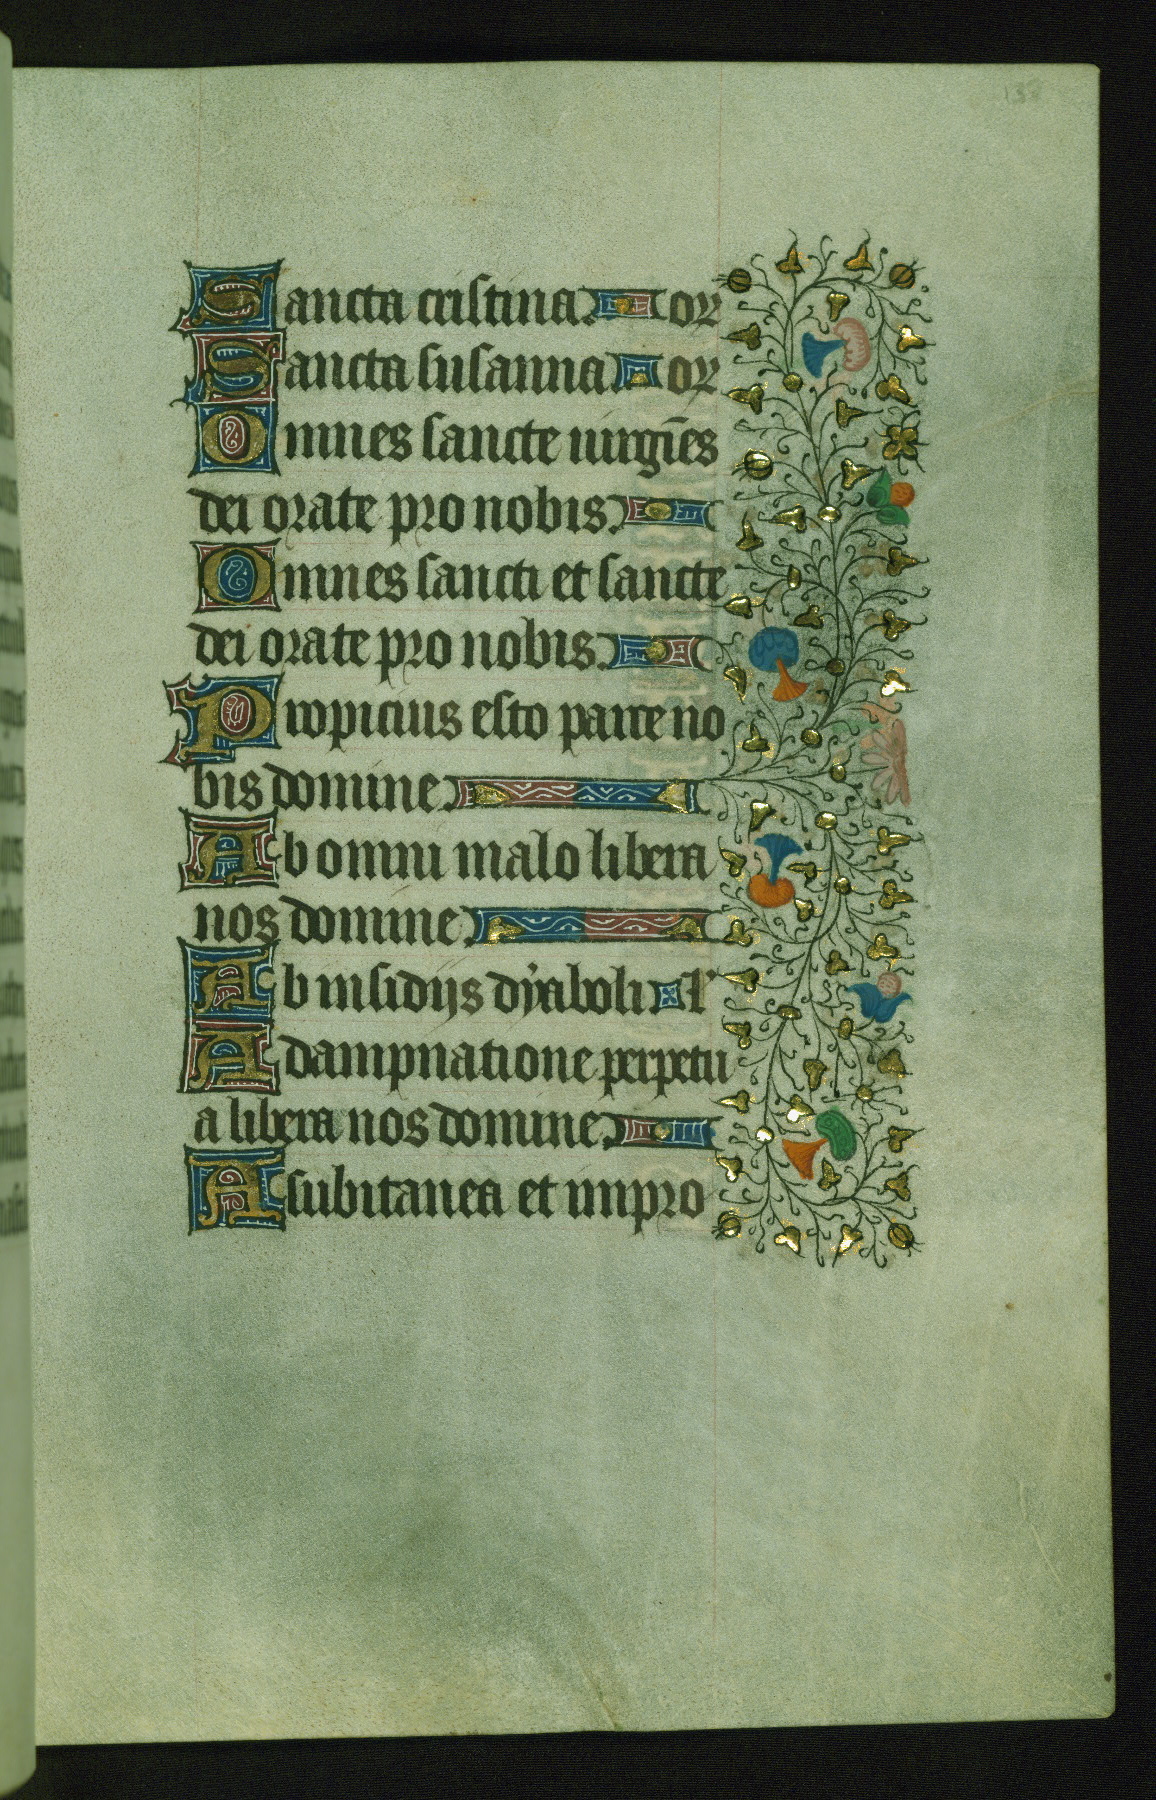 Sancta cristina or
Sancta susanna or
Omnes sancte uirgīes
dei orate pro nobis
Omnes sancti et sancte
dei orate pro nobis
Propicius esto parce no
bis domine
Ab omni malo libera
nos domine
Ab insidijs dyaboli l'
A dampnatione perpetu
a libera nos domine
A subitanea et impro